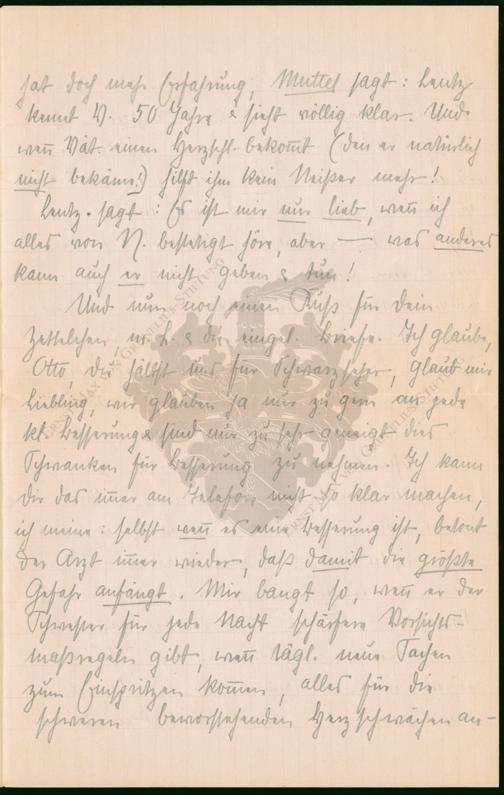 hat doch mehr Erfahrung, Muttel sagt: Leutz
kennt V. 50 Jahre & sieht völlig klar. Und
wen̅ Vat. einen Herzschl. bekom̅t (den er natürlich
nicht bekäme!) hilft ihm kein Neißer mehr!
Leutz. sagt: Es ist mir nur lieb, wen̅ ich
alles von N. bestetigt höre, aber — was anderes
kann auch er nicht geben & tun!
Und nun noch einen Kuß für Dein
Zettelchen m. L. & die eingel. Briefe. Ich glaube,
Otto, du hälst uns für Schwarzseher, glaub mir
Liebling, wir glauben ja nur zu gern an jede
kl. Besserung & sind nur zu sehr geneigt dies
Schwanken für Besserung zu nehmen. Ich kann
Dir das im̅er am Telefon nicht so klar machen,
ich meine: selbst wen̅ es eine Besserung ist, betont
der Arzt im̅er wieder, daß damit die größte
Gefahr anfängt. Mir bangt so, wen̅ er der
Schwester für jede Nacht schärfere Vorsichts-
maßregeln gibt, wen̅ tägl. neue Sachen
zum Einspritzen kom̅en, alles für die
schweren bevorstehenden Herzschwächen an-